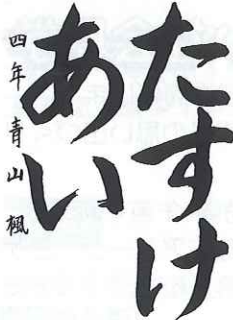 たすけ
あい
四年 青山楓